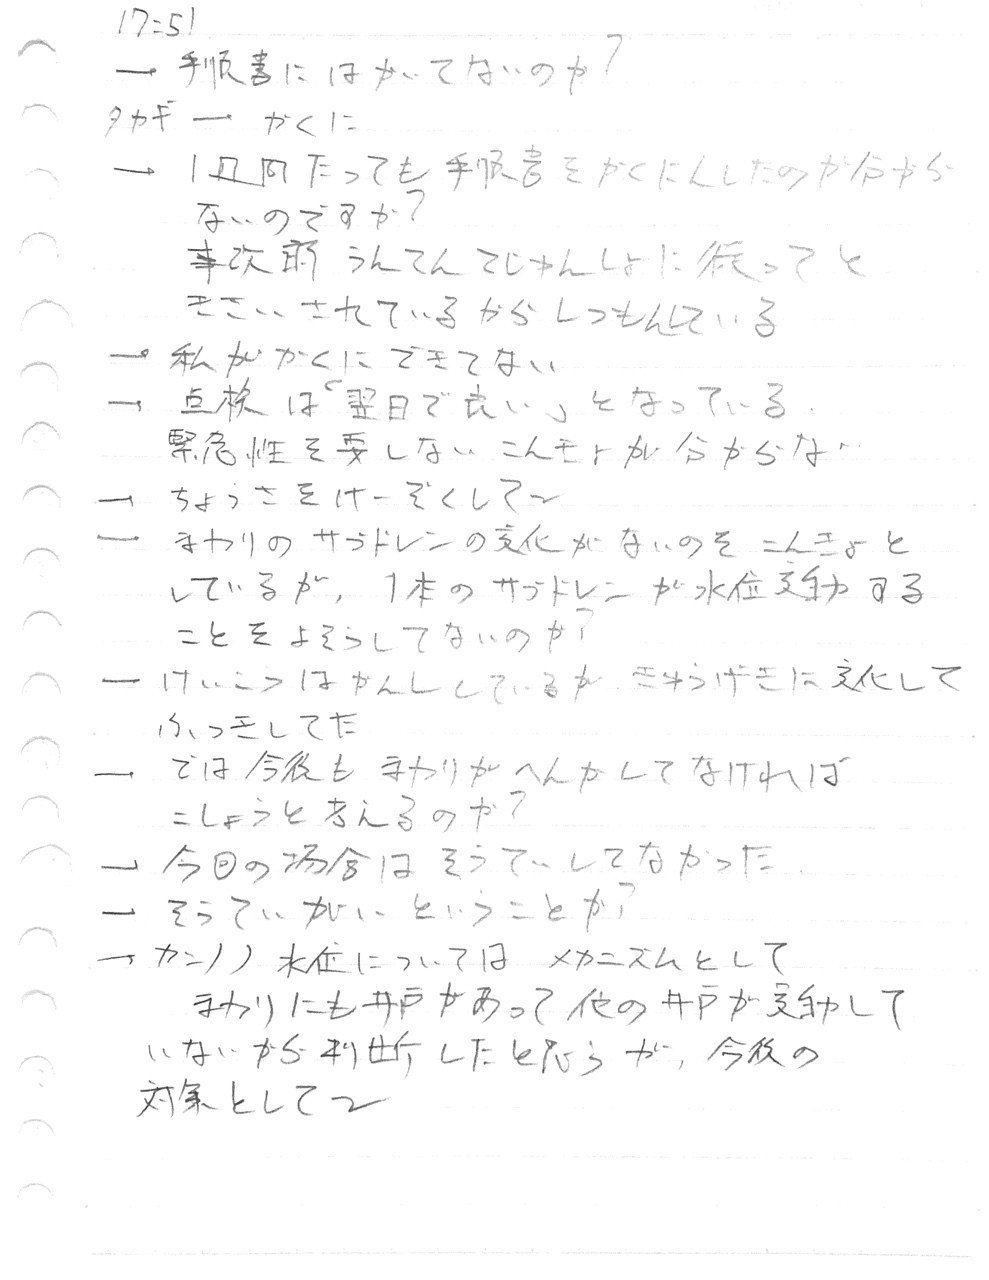 17:51
→ 手順書にはかいてないのか?
タカギ → かくに
→ 1週間たっても手順書をかくにんしたのか分から
ないのですか?
事故前 うんてんてじゅんしょに従ってと
きさいされているからしつもんしている
→ 私がかくにできてない
→ 点検は「翌日で良い」となっている.
緊急性を要しないこんきょが分からない
→ ちょうさをけーぞくして〜
― まわりのサブドレンの変化がないのをこんきょと
しているが、1本のサブドレンが水位変動する
ことをよそうしてないのか?
― けいこうはかんししているが、きゅうげきに変化して
ふっきしてた
― では今後もまわりがへんかしてなければ
こしょうと考えるのか?
→ 今回の場合はそうていしてなかった.
― そうていがいということか?
→ カンノ) 水位についてはメカニズムとして
まわりにも井戸があって他の井戸が変動して
いないから判断したと思うが、今後の
対象として〜